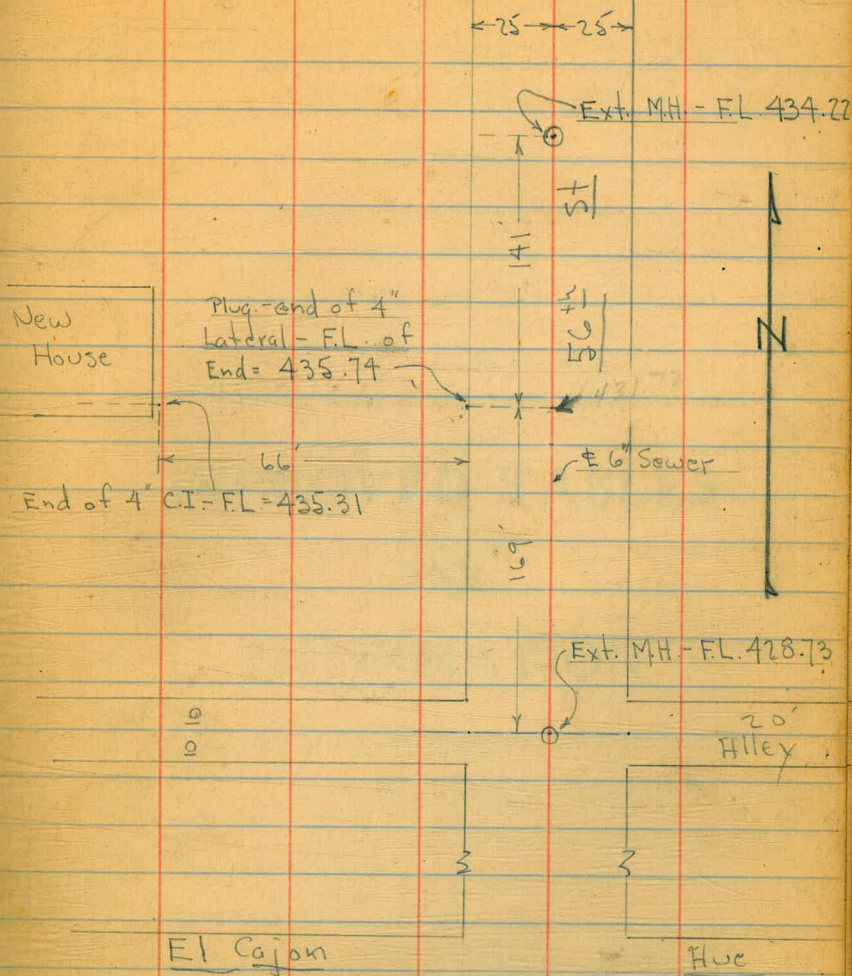 25 25
Ext. M.H. - F.L. 434.22
56th St
141'
New
House
Plug - end of 4"
Lateral - F.L. of
End = 435.74
66'
℄ 6" Sewer
End of 4" C.I. - F.L = 435.31
N
169'
Ext. M.H. - F.L. 428.73
20'
Alley
El Cajon Ave